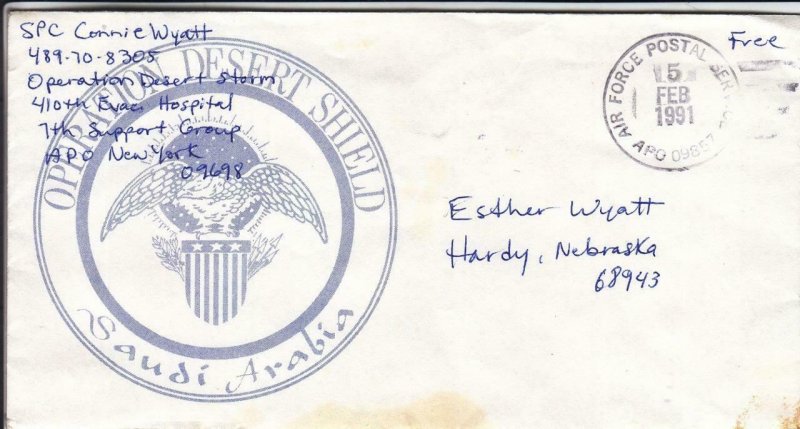 SPC Connie Wyatt
489-70-8305
Operation Desert Storm
410th Evac Hospital
7th Support Group
APO New York
09698
OPERATION DESERT SHIELD
Saudi Arabia
Free
AIR FORCE POSTAL SERVICE
5
FEB
1991
APO 09857
Esther Wyatt
Hardy, Nebraska
68943